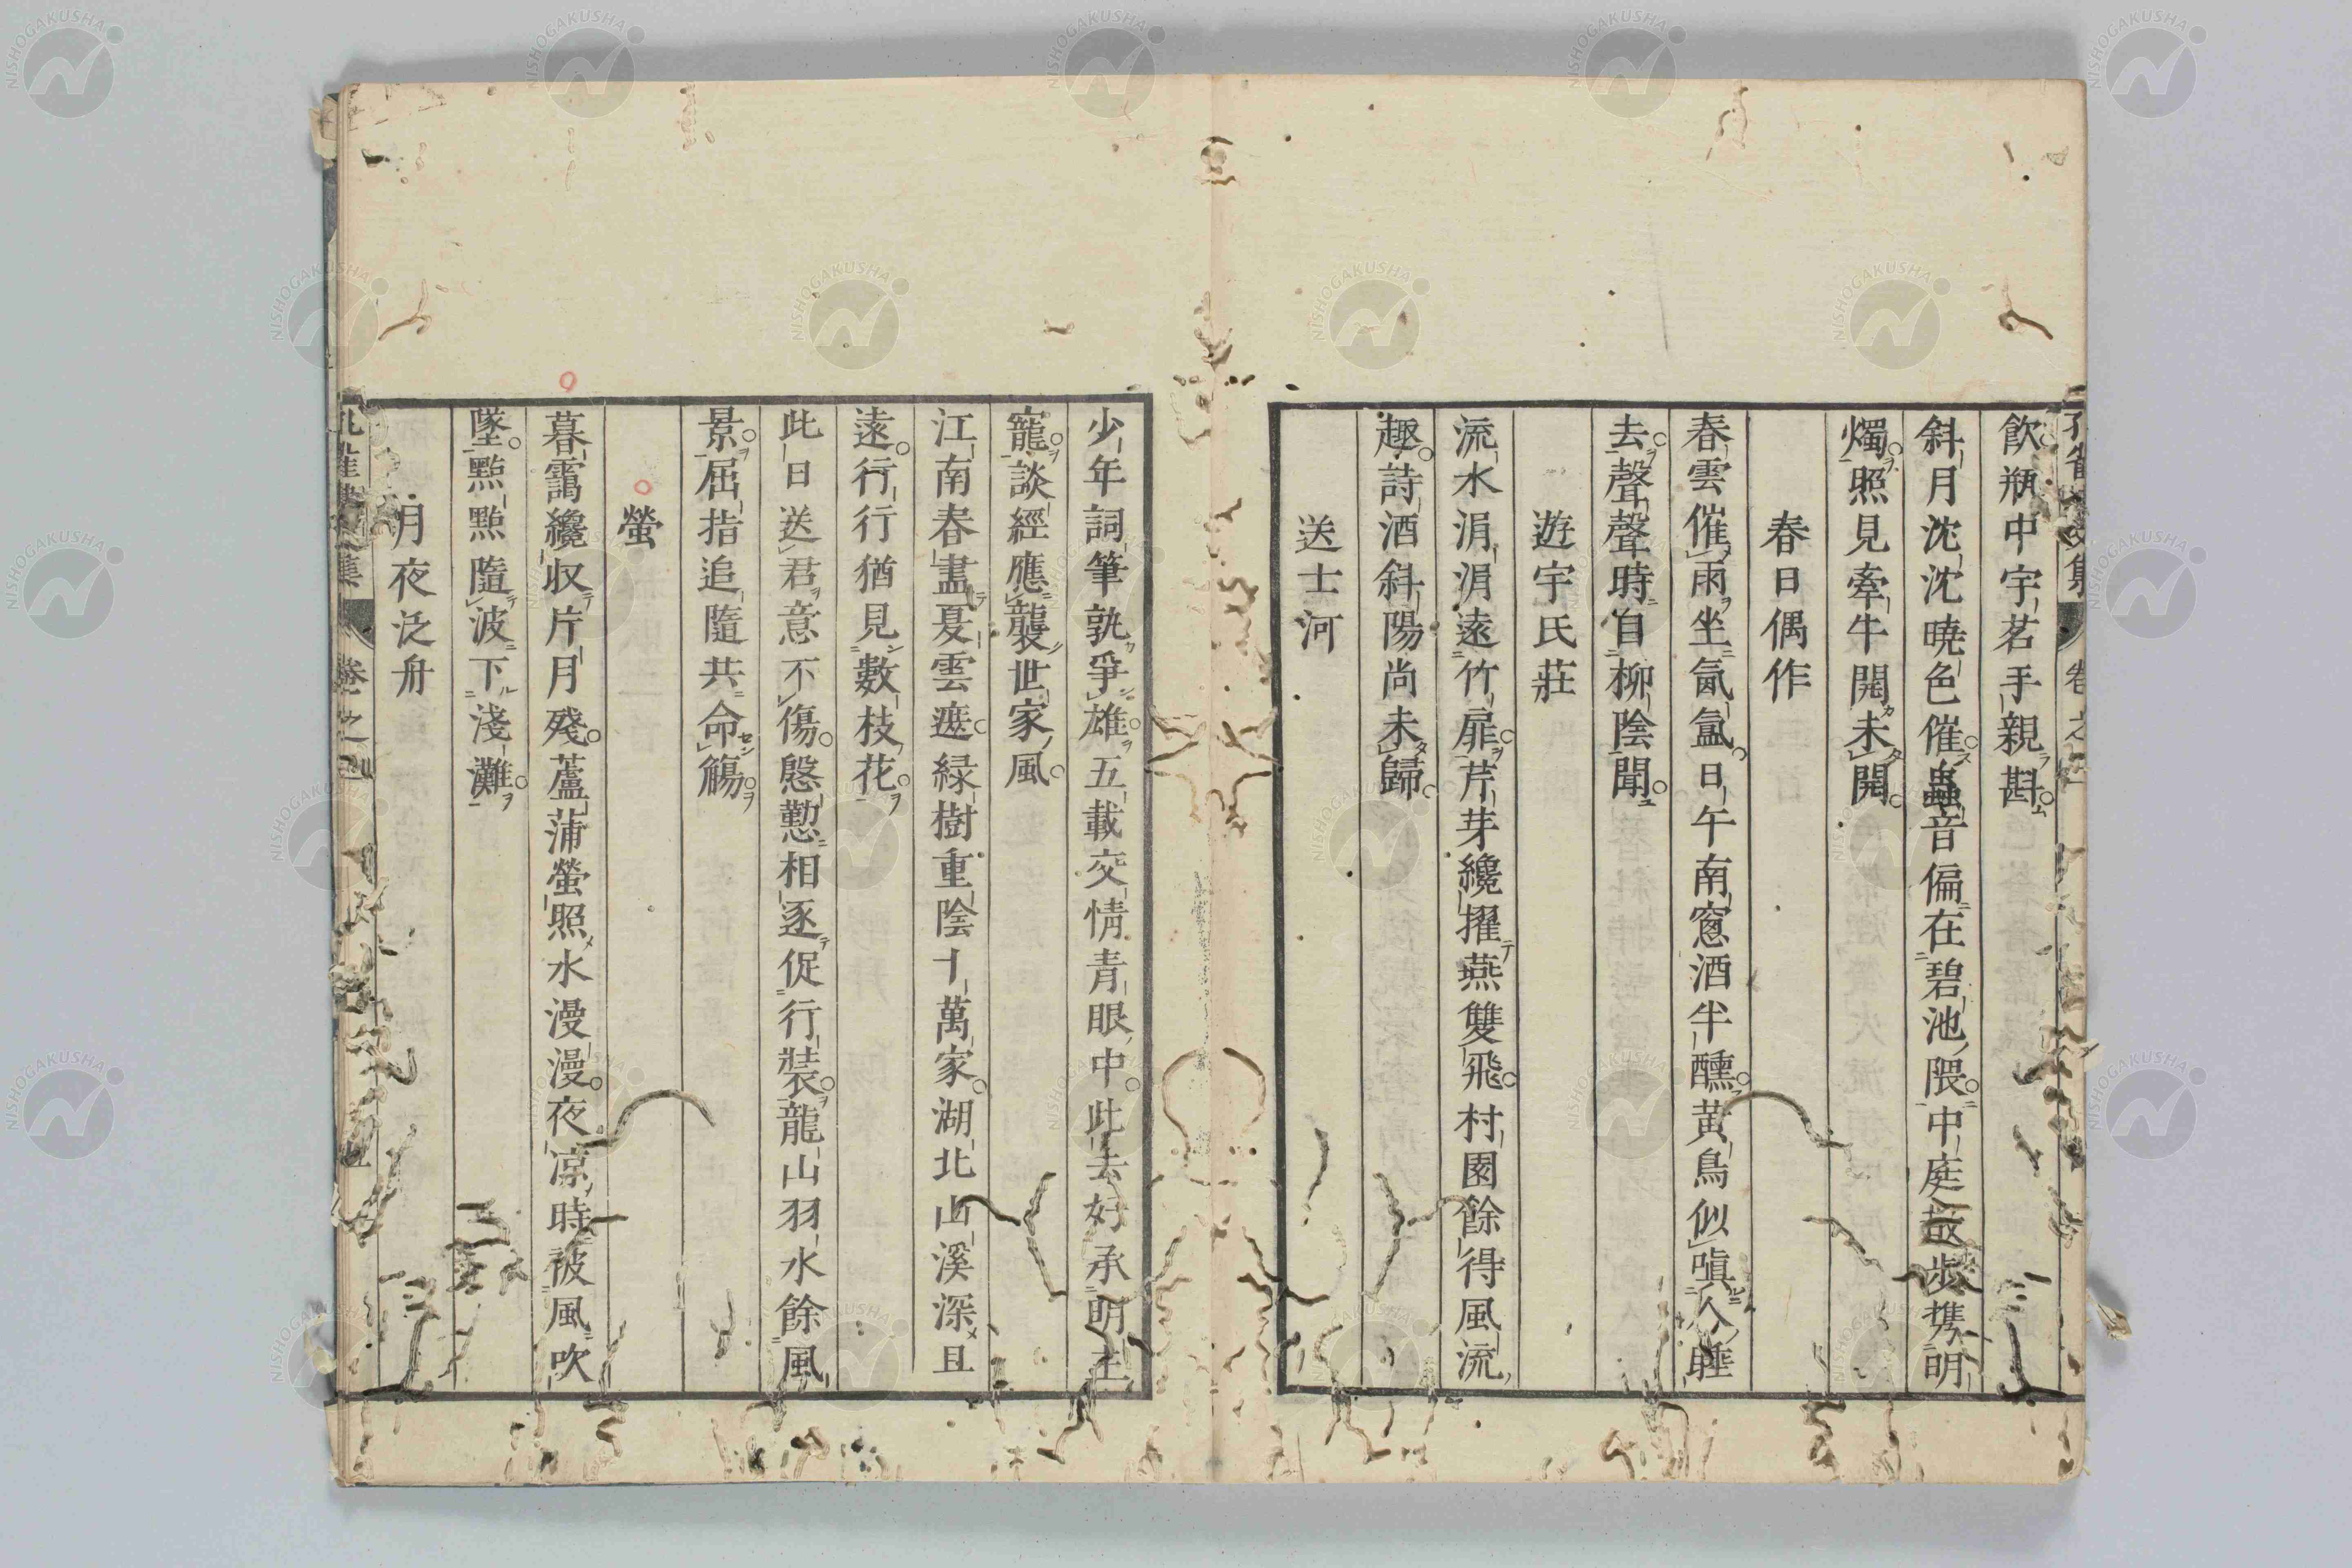 飮瓶中宇茗手親斟
斜月沈沈曉色催蟲音偏在碧池隈中庭故步携明
燭照見牽牛開未開
春日偶作
春雲催雨坐氤氳日午南窓酒半醺黃鳥似嗔人睡
去聲聲時自柳陰聞
遊宇氏莊
流水涓涓遶竹扉芹芽纔擢燕雙飛村園餘得風流
趣詩酒斜陽尚未歸
送士河
少年詞筆孰爭雄五載交情靑眼中此去好承明主
寵談經應襲世家風
江南春盡夏雲遮綠樹重陰十萬家湖北山溪深且
遠行行猶見數枝花
此日送君意不傷慇懃相逐促行裝龍山羽水餘風
景屈指追隨共命觴
螢
暮靄纔収片月殘蘆蒲螢照水漫漫夜凉時被風吹
墜點點隨波下淺灘
月夜泛舟
NISHOGAKUSHA